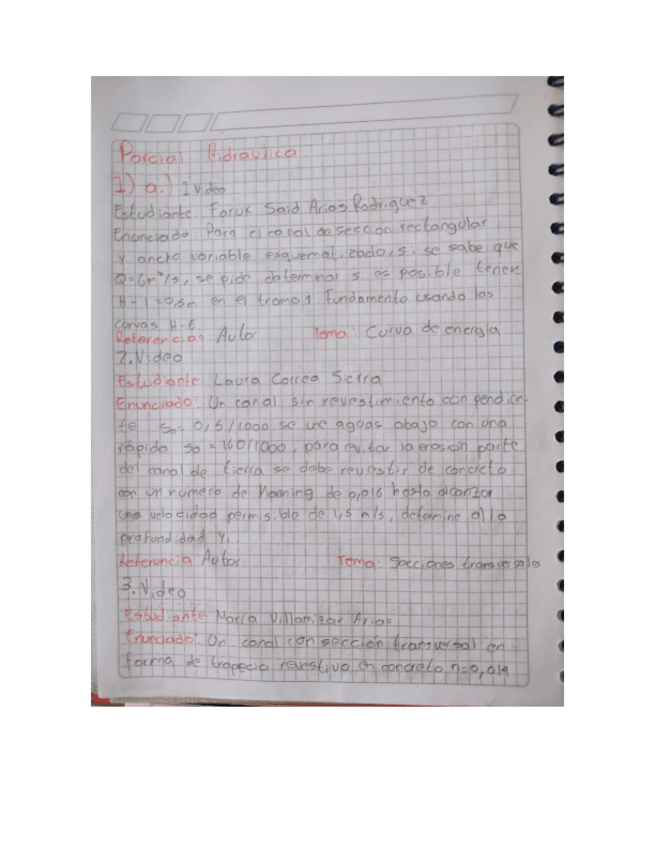 Parcial Hidraulica
1) a.) 1 Video
Estudiante Faruk Said Arias Rodriguez
Enunciado Para el canal de sección rectangular
y ancho variable esquematizado, s. se sabe que
Q=6m³/s, se pide determinar s es posible tener
H-1=0,5m en el tramo 1 fundamente usando las
corvas H-E
Referencias Auto Tema Curva de energia
2. Video
Estudiante Laura Correa Sierra
Enunciado: Un canal sin revestimiento con pendien
te So= 0,5/1000 se une aguas abajo con una
rápida So = 160/1000, para evitar la erosión parte
del canal de tierra se debe revestir de concreto
con un numero de Manning de 0,016 hasta alcanzar
una velocidad permisible de 1,5 m/s, determine a) la
profundidad Y1.
Referencia Autor Tema: Secciones transversales
3. Video
Estudiante María Villamizar Arias
Enunciado: Un canal con sección transversal en
forma de trapecio revestivo en concreto n=0,014